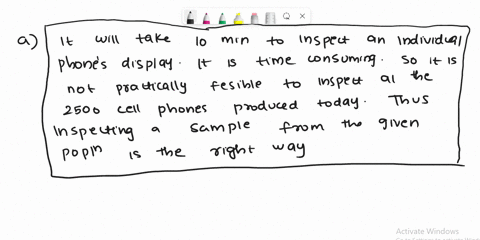 a) It will take 10 min to inspect an individual
phone's display. It is time consuming. So it is
not practically fesible to inspect al the
2500 cell phones produced today. Thus
Inspecting a sample from the given
popln is the right way
Activate Windows